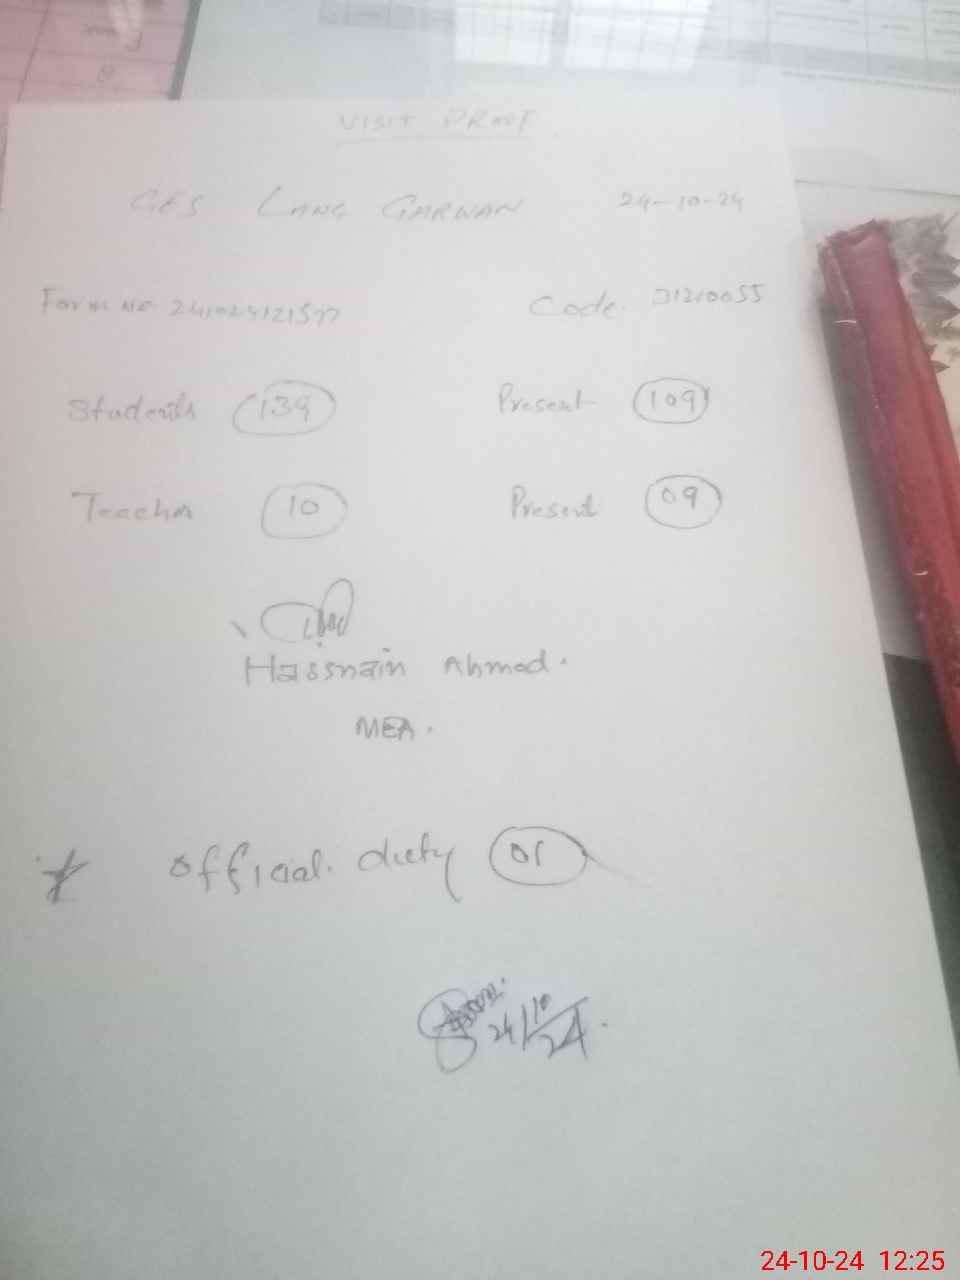 VISIT PROOF
GES LANG GARWAN 24-10-24
Form No. 241024121577 Code. 31210055
Students 139 Present 109
Teacher 10 Present 09
Hassnain Ahmad.
MEA.
* official duty 01
24/10/24.
24-10-24 12:25